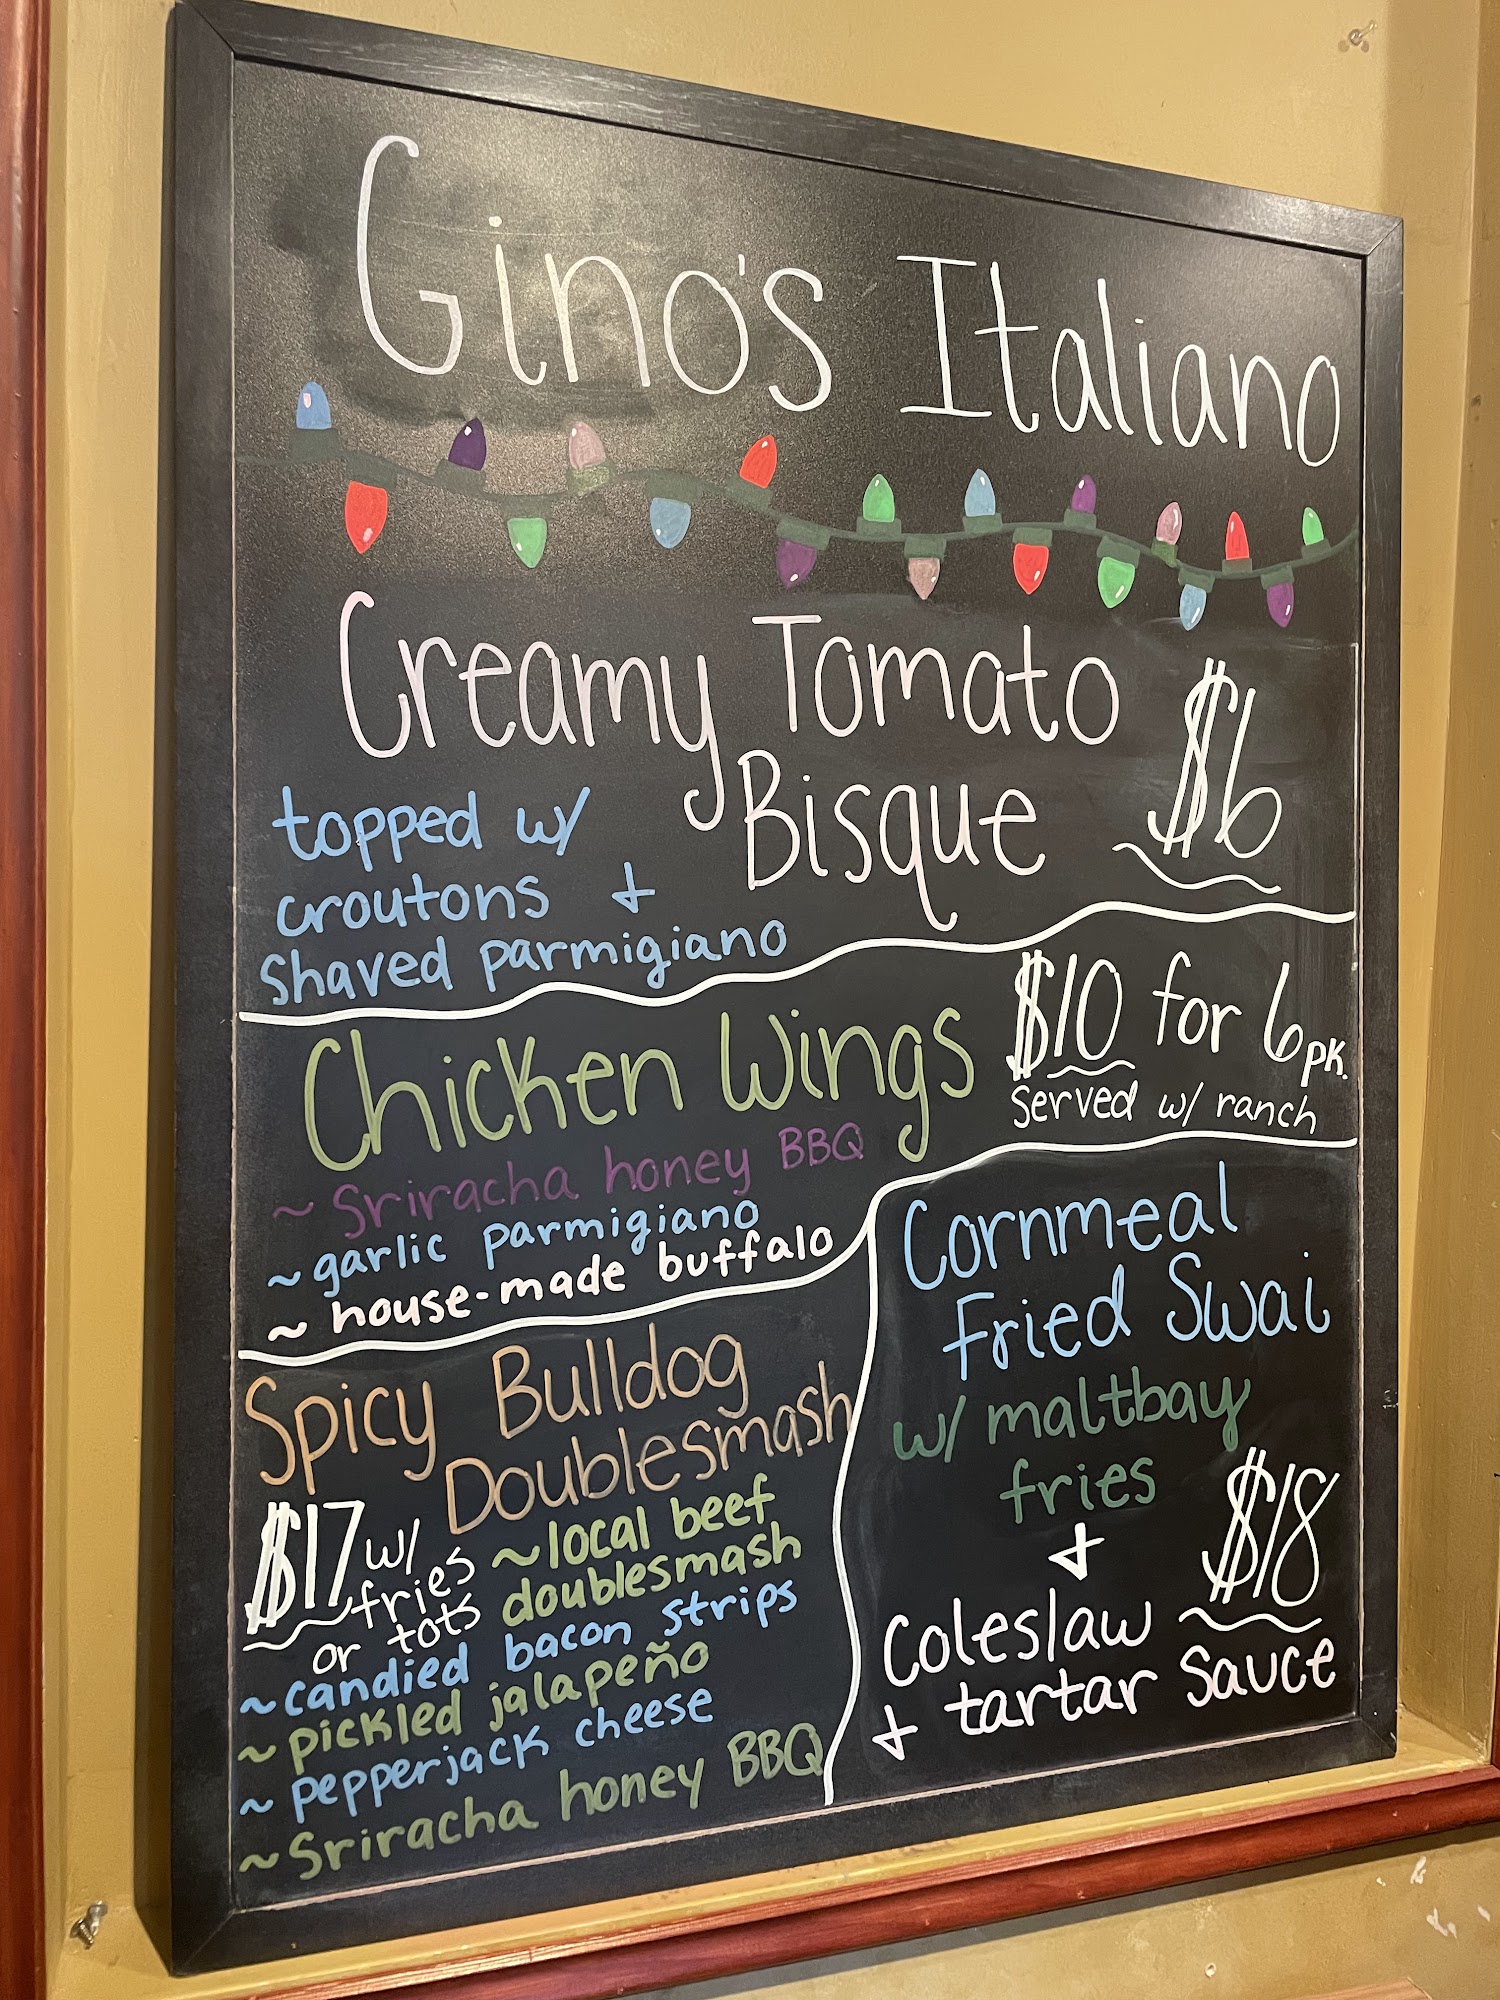 Gino's Italiano
Creamy Tomato
Bisque
$6
topped w/
croutons +
shaved parmigiano
Chicken Wings
$10 for 6pk.
served w/ ranch
~ Sriracha honey BBQ
~ garlic parmigiano
~ house-made buffalo
Spicy Bulldog
Doublesmash
$17 w/
fries
or tots
~local beef
doublesmash
~candied bacon strips
~pickled jalapeño
~ pepperjack cheese
~Sriracha honey BBQ
Cornmeal
Fried Swai
w/ maltbay
fries
+
$18
Coleslaw
+ tartar sauce